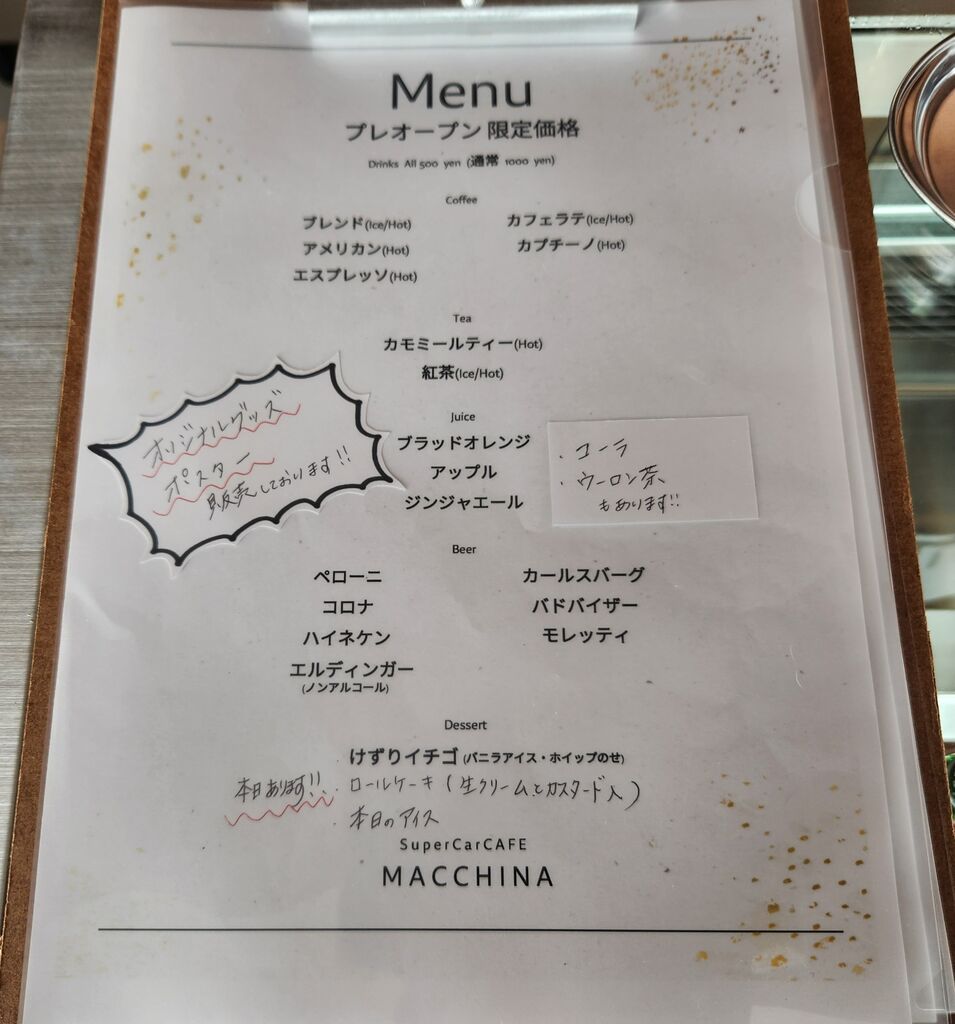 Menu
プレオープン 限定価格
Drinks All 500 yen (通常 1000 yen)
Coffee
ブレンド(Ice/Hot)
カフェラテ(Ice/Hot)
アメリカン(Hot)
カプチーノ(Hot)
エスプレッソ(Hot)
Tea
カモミールティー(Hot)
紅茶(Ice/Hot)
オリジナルグッズ
ポスター
販売しております!!
Juice
ブラッドオレンジ
アップル
ジンジャエール
・コーラ
・ウーロン茶
もあります!!
Beer
ペローニ
カールスバーグ
コロナ
バドバイザー
ハイネケン
モレッティ
エルディンガー
(ノンアルコール)
Dessert
けずりイチゴ(バニラアイス・ホイップのせ)
本日あります!!・ロールケーキ(生クリームとカスタード入)
・本日のアイス
SuperCarCAFE
MACCHINA